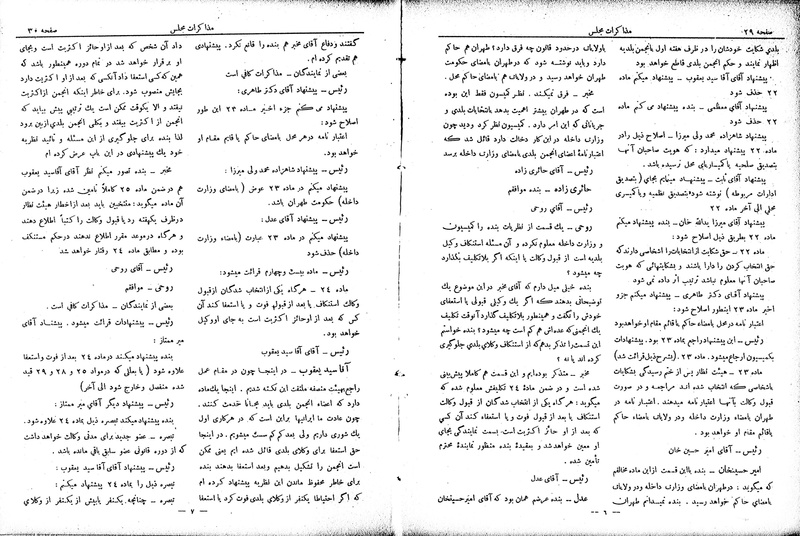 صفحه ۲۹
مذاکرات مجلس
بلدی شکایت خودشان را در ظرف هفته اول بانجمن بلدیه
اظهار نمایند و حکم انجمن بلدی قاطع خواهد بود
پیشنهاد آقای آقا سید یعقوب — پیشنهاد میکنم ماده
۲۲ حذف شود
پیشنهاد آقای معظمی — بنده پیشنهاد می کنم ماده
۲۲ حذف شود
پیشنهاد شاهزاده محمد ولی میرزا — اصلاح ذیل رادر
ماده ۲۲ پیشنهاد میدارد : که هویت صاحبان آنها
بتصدیق صلحیه یا کمیساریای محل نرسیده باشد .
پیشنهاد آقای ثابت — پیشنهاد مینمایم بجای (بتصدیق
ادارات مربوطه ) نوشته شود «بتصدیق نظمیه ویا کمیسری
محلی الی آخر ماده ۲۲
پیشنهاد آقای میرزا یدالله خان — بنده پیشنهاد میکنم
ماده ۲۲ بطریق ذیل اصلاح شود :
ماده ۲۲ — حق شکایت از انتخابات را اشخاصی دارند که
حق انتخاب کردن را دارا باشند و بشکایتهائی که هویت
صاحبان آنها معلوم نباشد ترتیب اثر داده نمی شود
پیشنهاد آقای دکتر طاهری — پیشنهاد میکنم جزو
اخیر ماده ۲۳ اینطور اصلاح شود:
اعتبار نامه در محل بامضای حاکم یا قائم مقام او خواهد بود
رئیس — این پیشنهاد راجع بماده ۲۳ بود. پیشنهادات
بکمیسیون ارجاع میشود. ماده ۲۳ . (بشرح ذیل قرائت شد)
ماده ۲۳ — هیئت نظار پس از ختم رسیدگی بشکایات
باشخاصی که انتخاب شده اند مراجعه و در صورت
قبول وکالت بآنها اعتبار نامه میدهند . اعتبار نامه در
طهران بامضای وزارت داخله ودر ولایات بامضاء حاکم
یاقائم مقام او خواهد بود.
رئیس — آقای امیر حسین خان
امیر حسینخان — بنده بااین قسمت از این ماده مخالفم
که میگوید : درطهران بامضای وزارت داخله ودر ولایات
بامضای حاکم خواهد رسید . بنده نمیدانم طهران
باولایات درحدود قانون چه فرق دارد؟ طهران هم حاکم
دارد وباید نوشته شود که درطهران بامضای حکومت
طهران خواهد رسید و در ولایات هم بامضای حاکم محل.
مخبر — فرق نمیکند . نظر کمیسون فقط این بوده
است که در طهران بیشتر اهمیت بدهد بانتخابات بلدی و
جریاناتی که این امر دارد . کمیسیون نظر کرد ودید چون
وزارت داخله در این کار دخالت دارد قائل شد که
اعتبار نامهٔ اعضای انجمن بلدی بامضای وزارت داخله برسد
رئیس — آقای حائری زاده
حائری زاده — بنده موافقم
رئیس — آقای روحی
روحی — یك قسمت از نظریات بنده را کمیسیون
و وزارت داخله معلوم نکرده و آن مسئله استنکاف وکیل
بلدیه است از قبول وکالت یا اینکه اگر بلاتکلیف بگذارد
چه میشود ؟
بنده خیلی میل دارم که آقای مخبر در این موضوع یك
توضیحاتی بدهند که اگر یك وکیلی قبولی یا استعفای
خودش را نگفت و همینطور بلاتکلیف گذارد آنوقت تکلیف
یك انجمنی که عده‌اش هم کم است چه میشود؟ بنده خواستم
این قسمت را تذکر بدهم که از استنکاف وکلای بلدی جلوگیری
کرده اند یا نه ؟
مخبر — متذکر بوده‌ایم و این قسمت هم کاملا پیش‌بینی
شده است و در ضمن مادهٔ ۲۴ تکلیفش معلوم شده که
میگوید : هر گاه یکی از انتخاب شدگان از قبول وکالت
استنکاف یا بعد از قبول فوت و یا استعفاء کند آن کسی
که بعد از او حائز اکثریت است بسمت نمایندگی بجای
او معین خواهد شد و بعقیدهٔ بنده منظور نمایندهٔ محترم
تأمین شده .
رئیس — آقای عدل
عدل — بنده عرضم همان بود که آقای امیرحسینخان
— ٦ —
مذاکرات مجلس
صفحه ۳۰
گفتند ودفاع آقای مخبر هم بنده را قانع نکرد. پیشنهادی
هم تقدیم کرده ام
بعضی از نمایندگان — مذاکرات کافی است
رئیس — پیشنهاد آقای دکتر طاهری .
پیشنهاد می کنم جزء اخیر ماده ۲۳ این طور
اصلاح شود:
اعتبار نامه درهر محل بامضای حاکم یا قائم مقام او
خواهد بود.
پیشنهاد شاهزاده محمد ولی میرزا :
پیشنهاد میکنم در ماده ۲۳ عوض (بامضای وزارت
داخله ) حکومت طهران باشد.
پیشنهاد آقای عدل:
پیشنهاد میکنم در ماده ۲۳ عبارت (بامضاء وزارت
داخله) حذف شود
رئیس — ماده بیست وچهارم قرائت میشود:
ماده ۲۴ — هر گاه یکی از انتخاب شدگان ازقبول
وکالت استنکاف یا بعد از قبول فوت و یا استعفا کند آن
کس که بعد از او حائز اکثریت است به جای او وکیل
خواهد بود.
رئیس — آقای آقاسید یعقوب
آقا سید یعقوب — در اینجا چون در مقام عمل
راجع بهیئت منصفه ملتفت این نکته شدیم . اینجا یك ماده
دارد که اعضاء انجمن بلدی باید مجاناً خدمت کنند.
چون عادت ما ایرانیها براین است که در هر کاری اول
یك شوری داریم ولی بعد کم کم سست میشویم . در اینجا
حق استعفا برای وکلای بلدی قائل شده ایم یعنی ممکن
است انجمن را تشکیل بدهیم وبعد استعفا بدهند بنده
برای خاطر محفوظ ماندن این نظریه پیشنهاد کرده ام
که اگر احتیاطا یکنفر از وکلای بلدی فوت کرد یا استعفا
داد آن شخص که بعد از او حائز اکثریت است وبجای
او برقرار خواهد شد در تمام دوره همینطور باشد که
همین که کسی استعفا داد آنکسی که بعد از او اکثریت دارد
بجایش منصوب شود. برای خاطر اینکه انجمن ازاکثریت
نیفتد و الا یکوقت ممکن است یك ترتیبی پیش بیاید که
انجمن از اکثریت بیفتد و بکلی انجمن بلدی از بین برود
لذا بنده برای جلو گیری از این مسئله و تأئید نظریه
خود یك پیشنهادی در این باب عرض کرده ام
مخبر — بنده تصور میکنم نظر آقای آقاسید یعقوب
هم در ضمن ماده ۲۵ کاملاً تأمین شده زیرا درضمن
آن ماده میگوید: منتخبین باید بعد از اخطار هیئت نظار
در ظرف یکهفته رد یا قبول وکالت را کتباً اطلاع دهند
و هرگاه درموعد مقرر اطلاع ندهند درحکم مستنکف
بوده و مطابق ماده ۲۴ رفتار خواهد شد
رئیس — آقای روحی
روحی — موافقم
بعضی از نمایندگان — مذاکرات کافی است .
رئیس — پیشنهادات قرائت میشود . پیشنهاد آقای
میر ممتاز :
بنده پیشنهاد میکند درماده ۲۴ بعد از فوت واستعفا
علاوه شود ( یا بعللی که درمواد ۲۵ و ۲۸ و ۲۹ قید
شده منفصل وخارج شود الی آخر)
رئیس — پیشنهاد دیگر آقای میر ممتاز :
بنده پیشنهاد میکند تبصره ذیل بماده ۲۴ علاوه شود.
تبصره — عضو جدید برای مدتی وکالت خواهد داشت
که از دوره قانونی عضو سابق باقی مانده باشد .
رئیس — پیشنهاد آقای آقا سید یعقوب :
تبصره ذیل را بماده ۲۴ پیشنهاد میکنم :
تبصره — چنانچه یکنفر یابیش از یکنفر از وکلای
— ۷ —